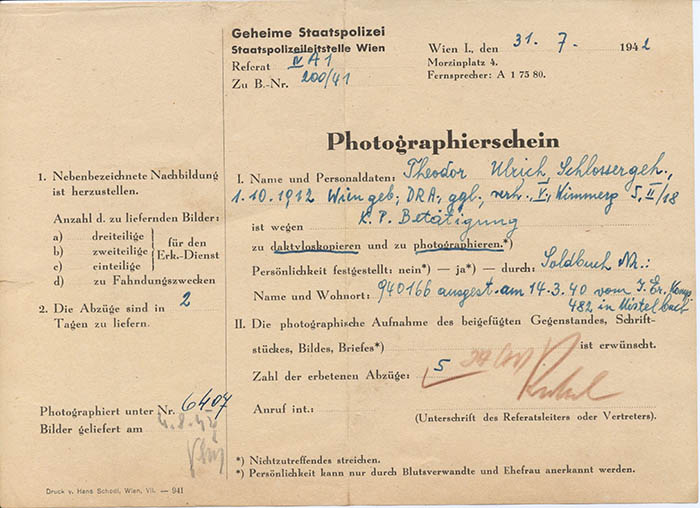 Geheime Staatspolizei
Staatspolizeileitstelle Wien
Referat IV A1
Zu B.-Nr. 200/41
Wien I., den 31. 7. 1942
Morzinplatz 4.
Fernsprecher: A 1 75 80.
Photographierschein
1. Nebenbezeichnete Nachbildung
ist herzustellen.
Anzahl d. zu liefernden Bilder:
a) dreiteilige
b) zweiteilige
c) einteilige
für den
Erk.-Dienst
d) zu Fahndungszwecken
2. Die Abzüge sind in 2
Tagen zu liefern.
Photographiert unter Nr. 6407
Bilder geliefert am 4.8.42
I. Name und Personaldaten: Theodor Ulrich, Schlossergeh.,
1.10.1912 Wien geb., DRA., ggl., verh., V., 5, II/18
ist wegen K. P. Betätigung
zu daktyloskopieren und zu photographieren.*)
Persönlichkeit festgestellt: nein*) — ja*) — durch: Soldbuch Nr.:
Name und Wohnort: 940166 ausgest. am 14.3.40 vom J. Er. Komp.
482 in Mistelbach
II. Die photographische Aufnahme des beigefügten Gegenstandes, Schrift-
stückes, Bildes, Briefes*) ist erwünscht.
Zahl der erbetenen Abzüge: 5
Anruf int.:
(Unterschrift des Referatsleiters oder Vertreters).
*) Nichtzutreffendes streichen.
*) Persönlichkeit kann nur durch Blutsverwandte und Ehefrau anerkannt werden.
Druck v. Hans Schodl, Wien, VII. — 941